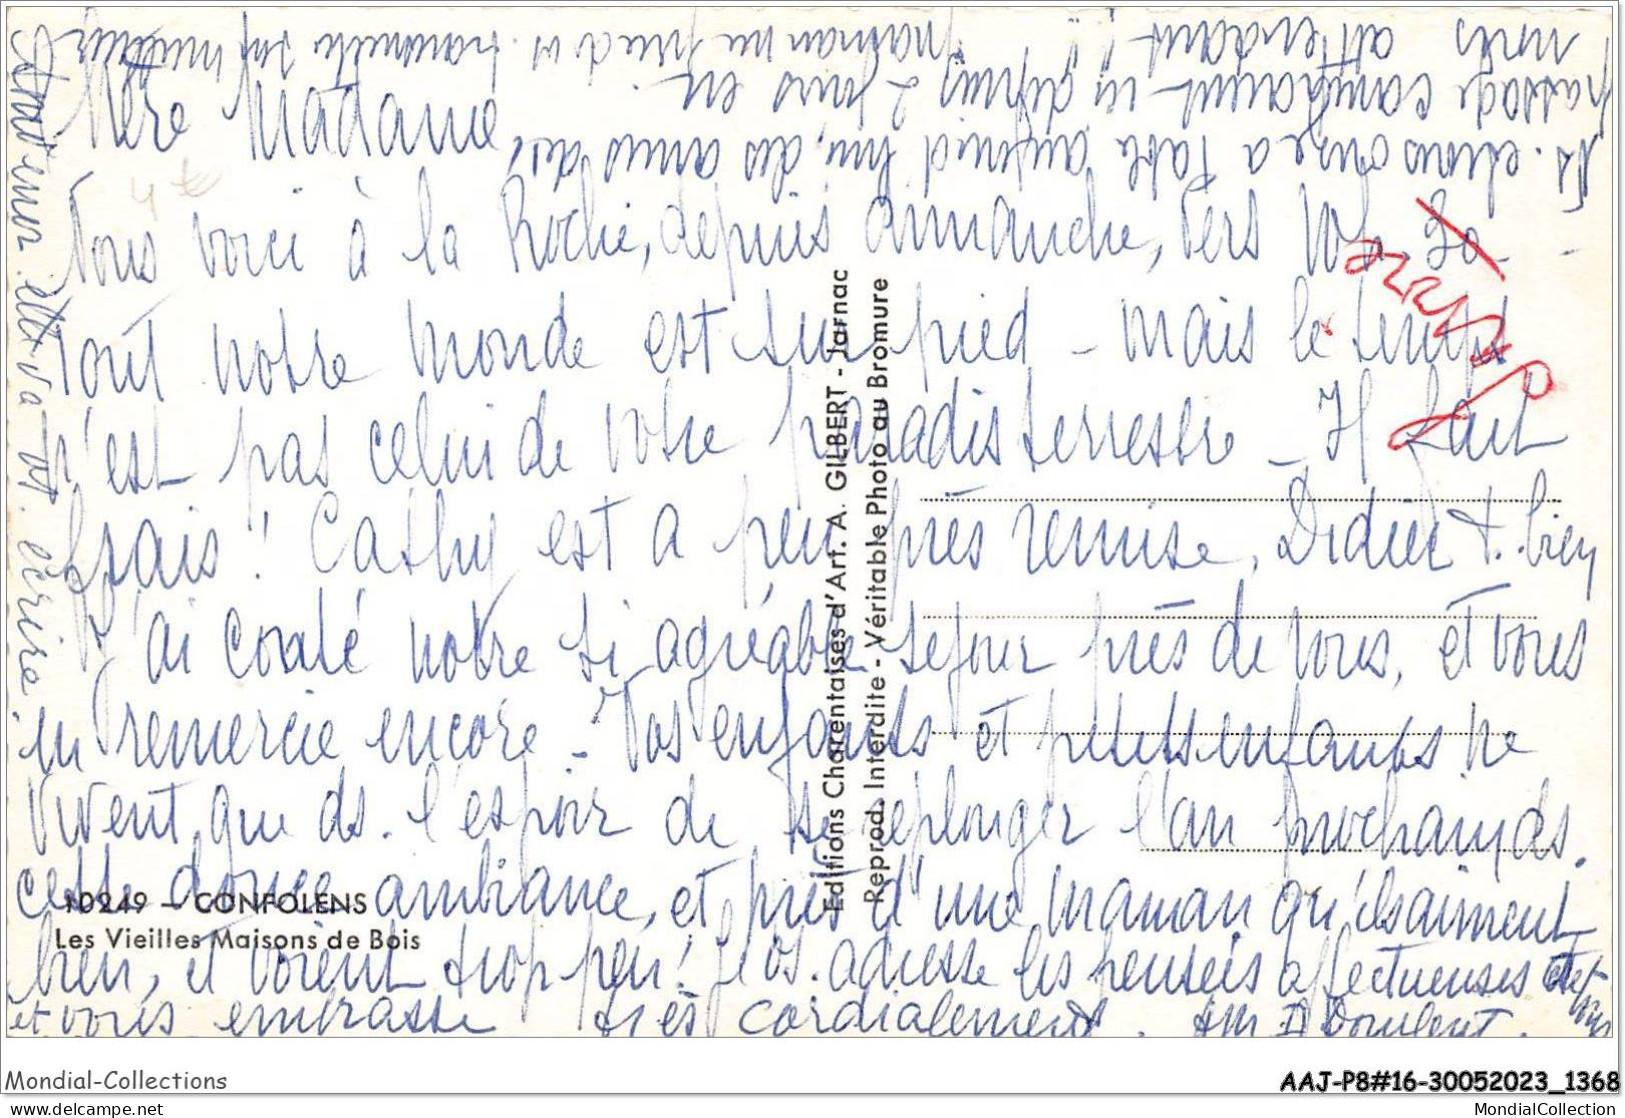 Chère Madame,
Nous voici à la Roche, depuis dimanche, vers
Tout notre monde est sur pied - mais le temps
n'est pas celui de votre paradis terrestre - Il fait
frais ! Cathy est à peu près remise, Didier t. bien
J'ai conté notre si agréable séjour près de vous, et vous
en remercie encore - Vos enfants et petits enfants ne
vivent que ds. l'espoir de se replonger l'an prochain ds.
cette douce ambiance, et près d'une maman qu'ils aiment
bien, et voient trop peu ! Je vs. adresse les pensées affectueuses
et vous embrasse très cordialement.
Ns. étions onze à table aujourd'hui, des amis de
passage campaient ici depuis 2 jours en
attendant
maman me prie de vs. transmettre son meilleur
et va vs. écrire.
10249 - CONFOLENS
Les Vieilles Maisons de Bois
Editions Charentaises d'Art. A. GILBERT - Jarnac
Reprod. Interdite - Véritable Photo au Bromure
Mondial-Collections
AAJ-P8#16-30052023_1368
delcampe.net
MondialCollection